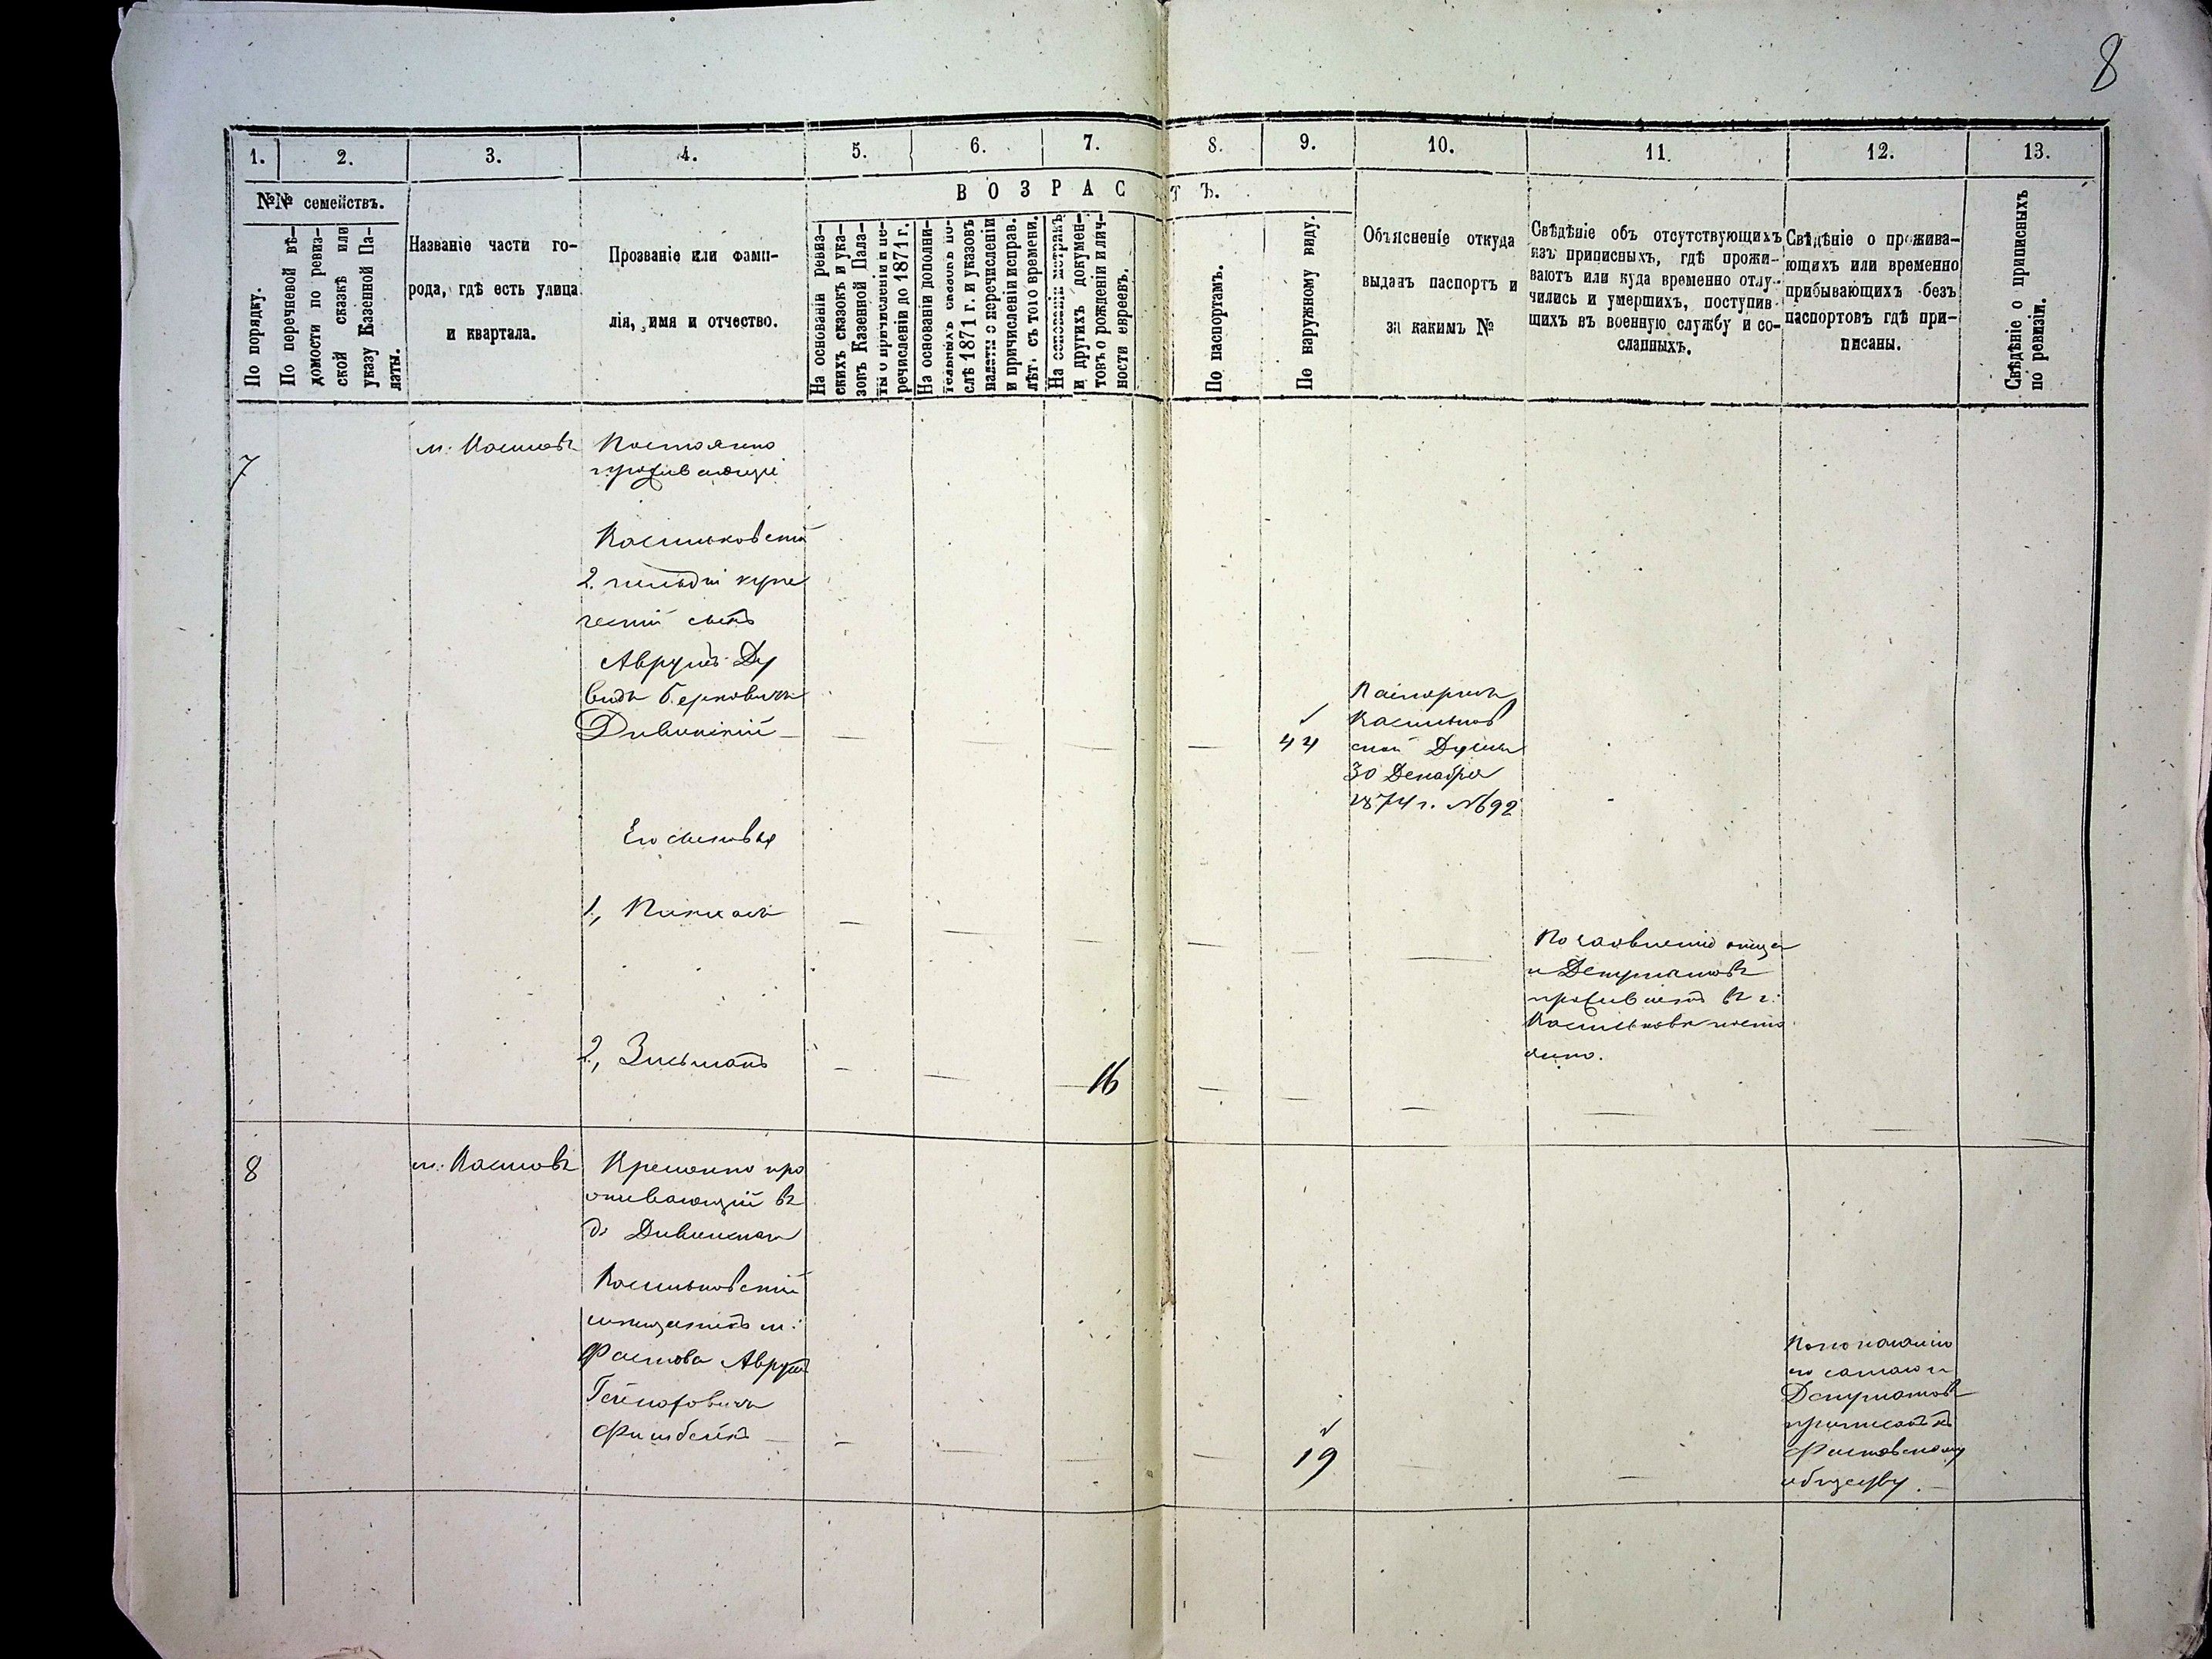 8
1.
2.
3.
4.
5.
6.
7.
8.
9.
10.
11.
12.
13.
№№ семействъ.
ВОЗРАСТЪ.
По порядку.
По перечневой вѣ-
домости по ревиз-
ской сказкѣ или
указу Казенной Па-
латы.
Названіе части го-
рода, гдѣ есть улица
и квартала.
Прозваніе или фами-
лія, имя и отчество.
На основаніи ревиз-
скихъ сказокъ и ука-
зовъ Казенной Пала-
ты о причисленіи и пе-
речисленіи до 1871 г.
На основаніи дополни-
тельныхъ сказокъ по-
слѣ 1871 г. и указовъ
палаты о перечисленіи
и причисленіи исправ.
лѣт. съ того времени.
На основаніи метрикъ
и другихъ докумен-
товъ о рожденіи и лич-
ности евреевъ.
По паспортамъ.
По наружному виду.
Объясненіе откуда
выданъ паспортъ и
за какимъ №
Свѣдѣніе объ отсутствующихъ
изъ приписныхъ, гдѣ прожи-
ваютъ или куда временно отлу-
чились и умершихъ, поступив-
шихъ въ военную службу и со-
сланныхъ.
Свѣдѣніе о прожива-
ющихъ или временно
прибывающихъ безъ
паспортовъ гдѣ при-
писаны.
Свѣдѣніе о приписныхъ
по ревизіи.
7
Постоянно
проживающіе
Васильковскій
2. гильдіи купе
ческій сынъ
Аврумъ Ду
видъ Берковичъ
Дивинскій —
44
Паспортъ
Васильков
ской Думы
30 Декабря
1874 г. №92
Его сыновья
1.,
По заявленію отца
и Депутатовъ
проживаетъ въ г.
Васильковѣ посто
янно.
2., Зисьманъ
16
8
Временно про
живающій въ
д. Дивинскаго
Васильковскій
мѣщанинъ м.
Фастова Аврумъ
19
По показанію
его самаго и
Депутатовъ
приписанъ къ
Фастовскому
обществу. —